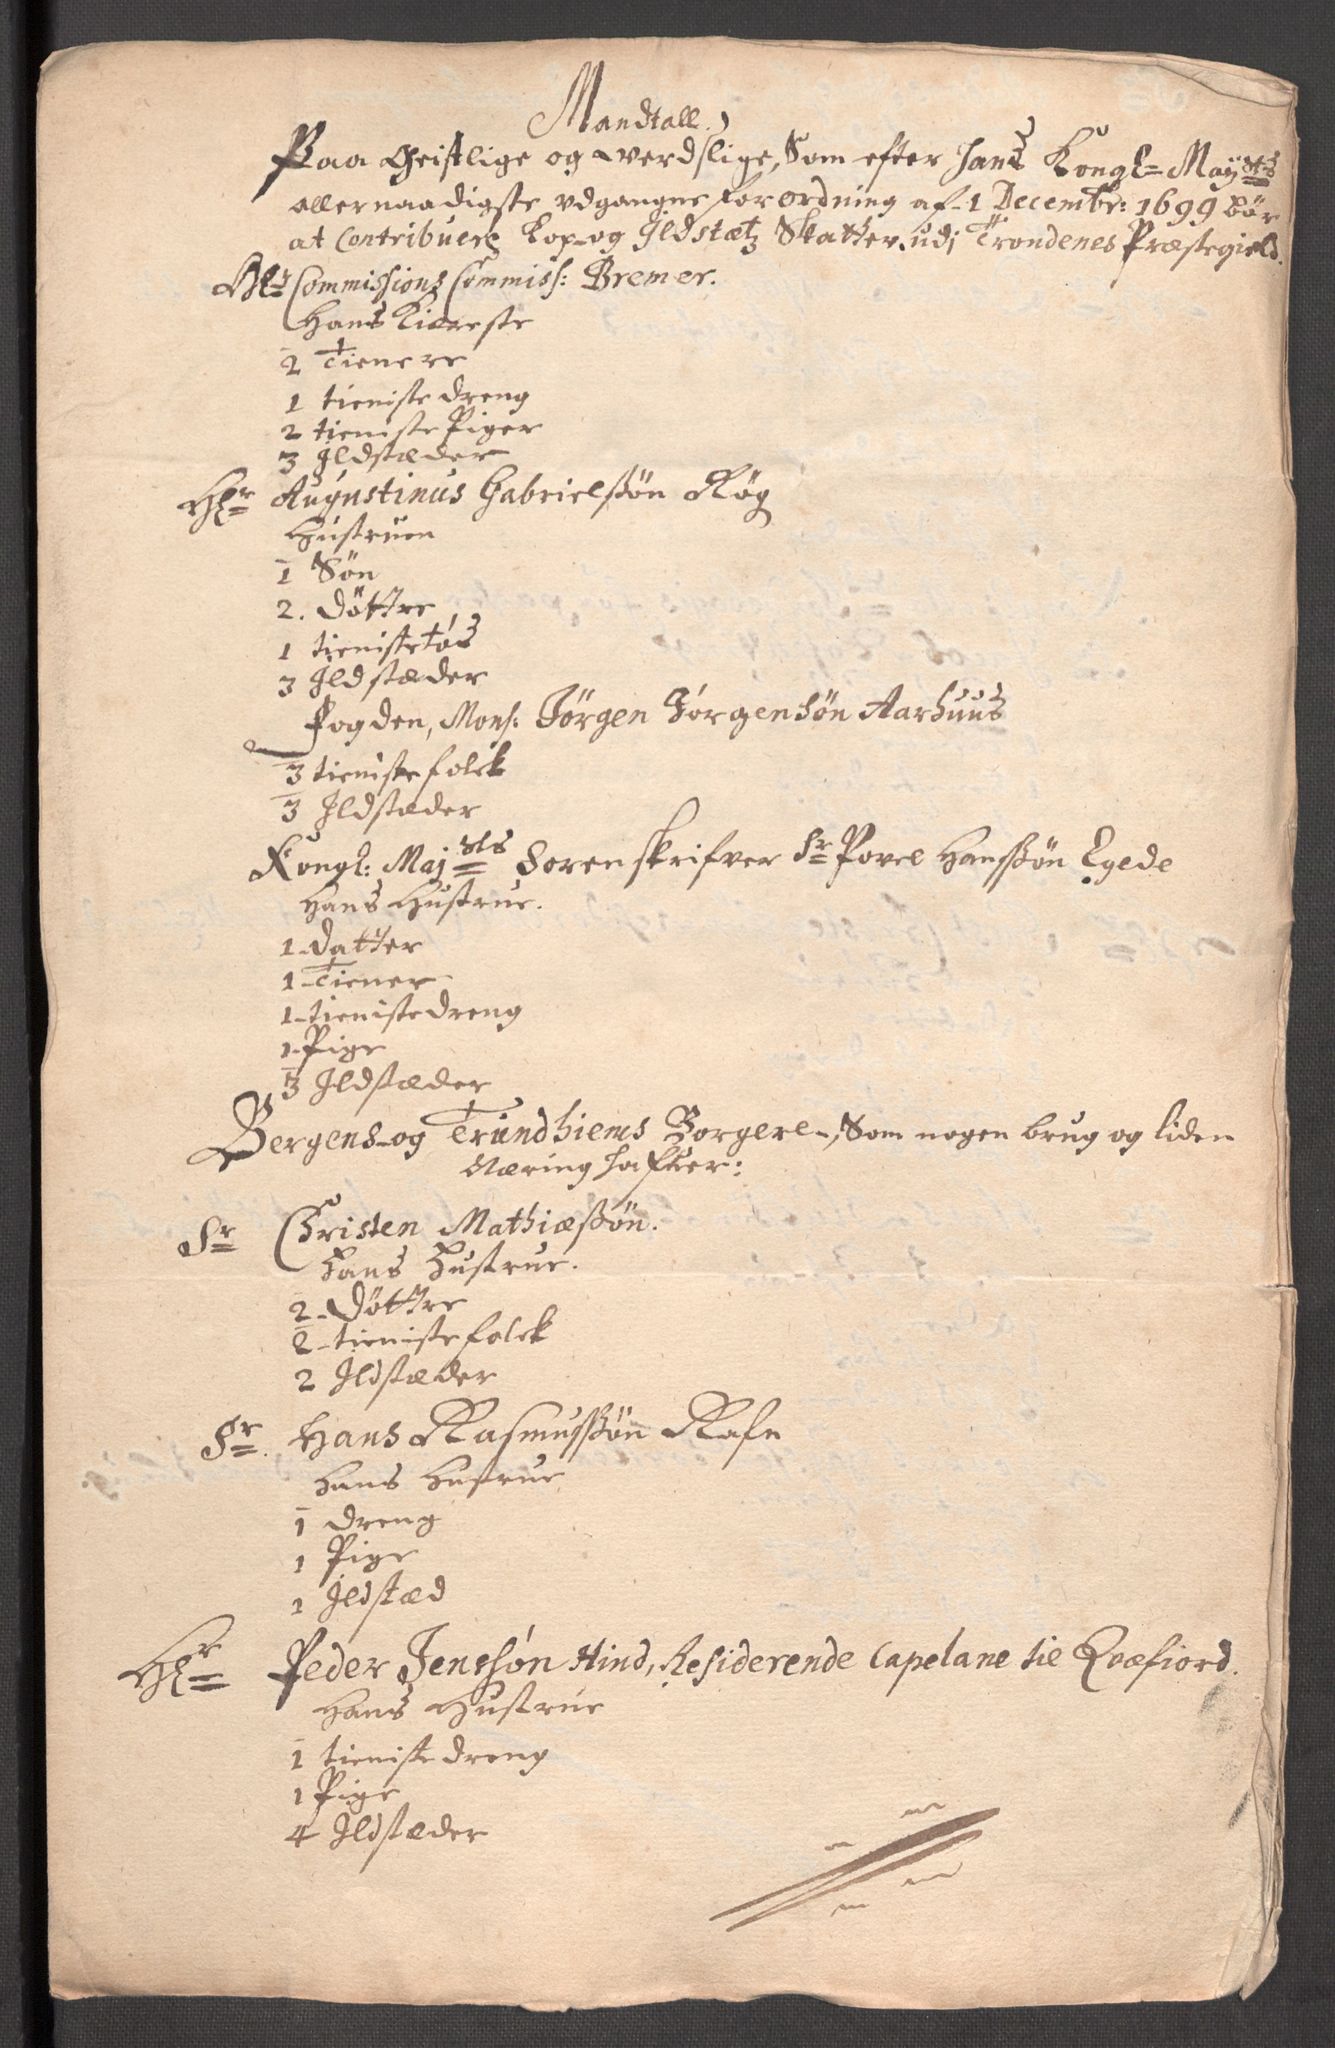 Mandtall
Paa Geistlige og verdslige, Som efter Hans Kongl= May^sts
allernaadigste udgangne forordning af 1 Decembr: 1699 bör
at Contribuere Kop- og Ildstætz Skatter udj Trondenes Præstegield.
Commissions Commiss: Bremer.
Hans Kiæreste
2 Tienere
1 tieniste dreng
2 tieniste Piger
3 Ildstæder
H^r Augustinus Gabrielssön Røg
Hustruen
1 Sön
2. Döttre
1 tienistetøs
3 Ildstæder
Fogden, Mons: Jørgen Jørgensön Aarhuus
3 tienistefolck
3 Ildstæder
Kongl: Maj^sts Sorenskrifver S^r Povel Hanssön Egede
Hans Hustrue.
1 Datter
1 Tiener
1 tienistedreng
1 Pige
3 Ildstæder
Bergens og Trundhiems Borgere, Som nogen brug og liden
Næring hafver:
S^r Christen Mathiæssön.
Hans Hustrue.
2 Döttre
2 tienistefolck
2 Ildstæder
S^r. Hans Rasmussön Rafn
Hans Hustrue
1 dreng
1 Pige
1 Ildstæd
H^r Peder Jenssøn Hind, Residerende Capelane til Qvæfiord.
Hans Hustrue
1 tieniste dreng
1 Pige
4 Ildstæder